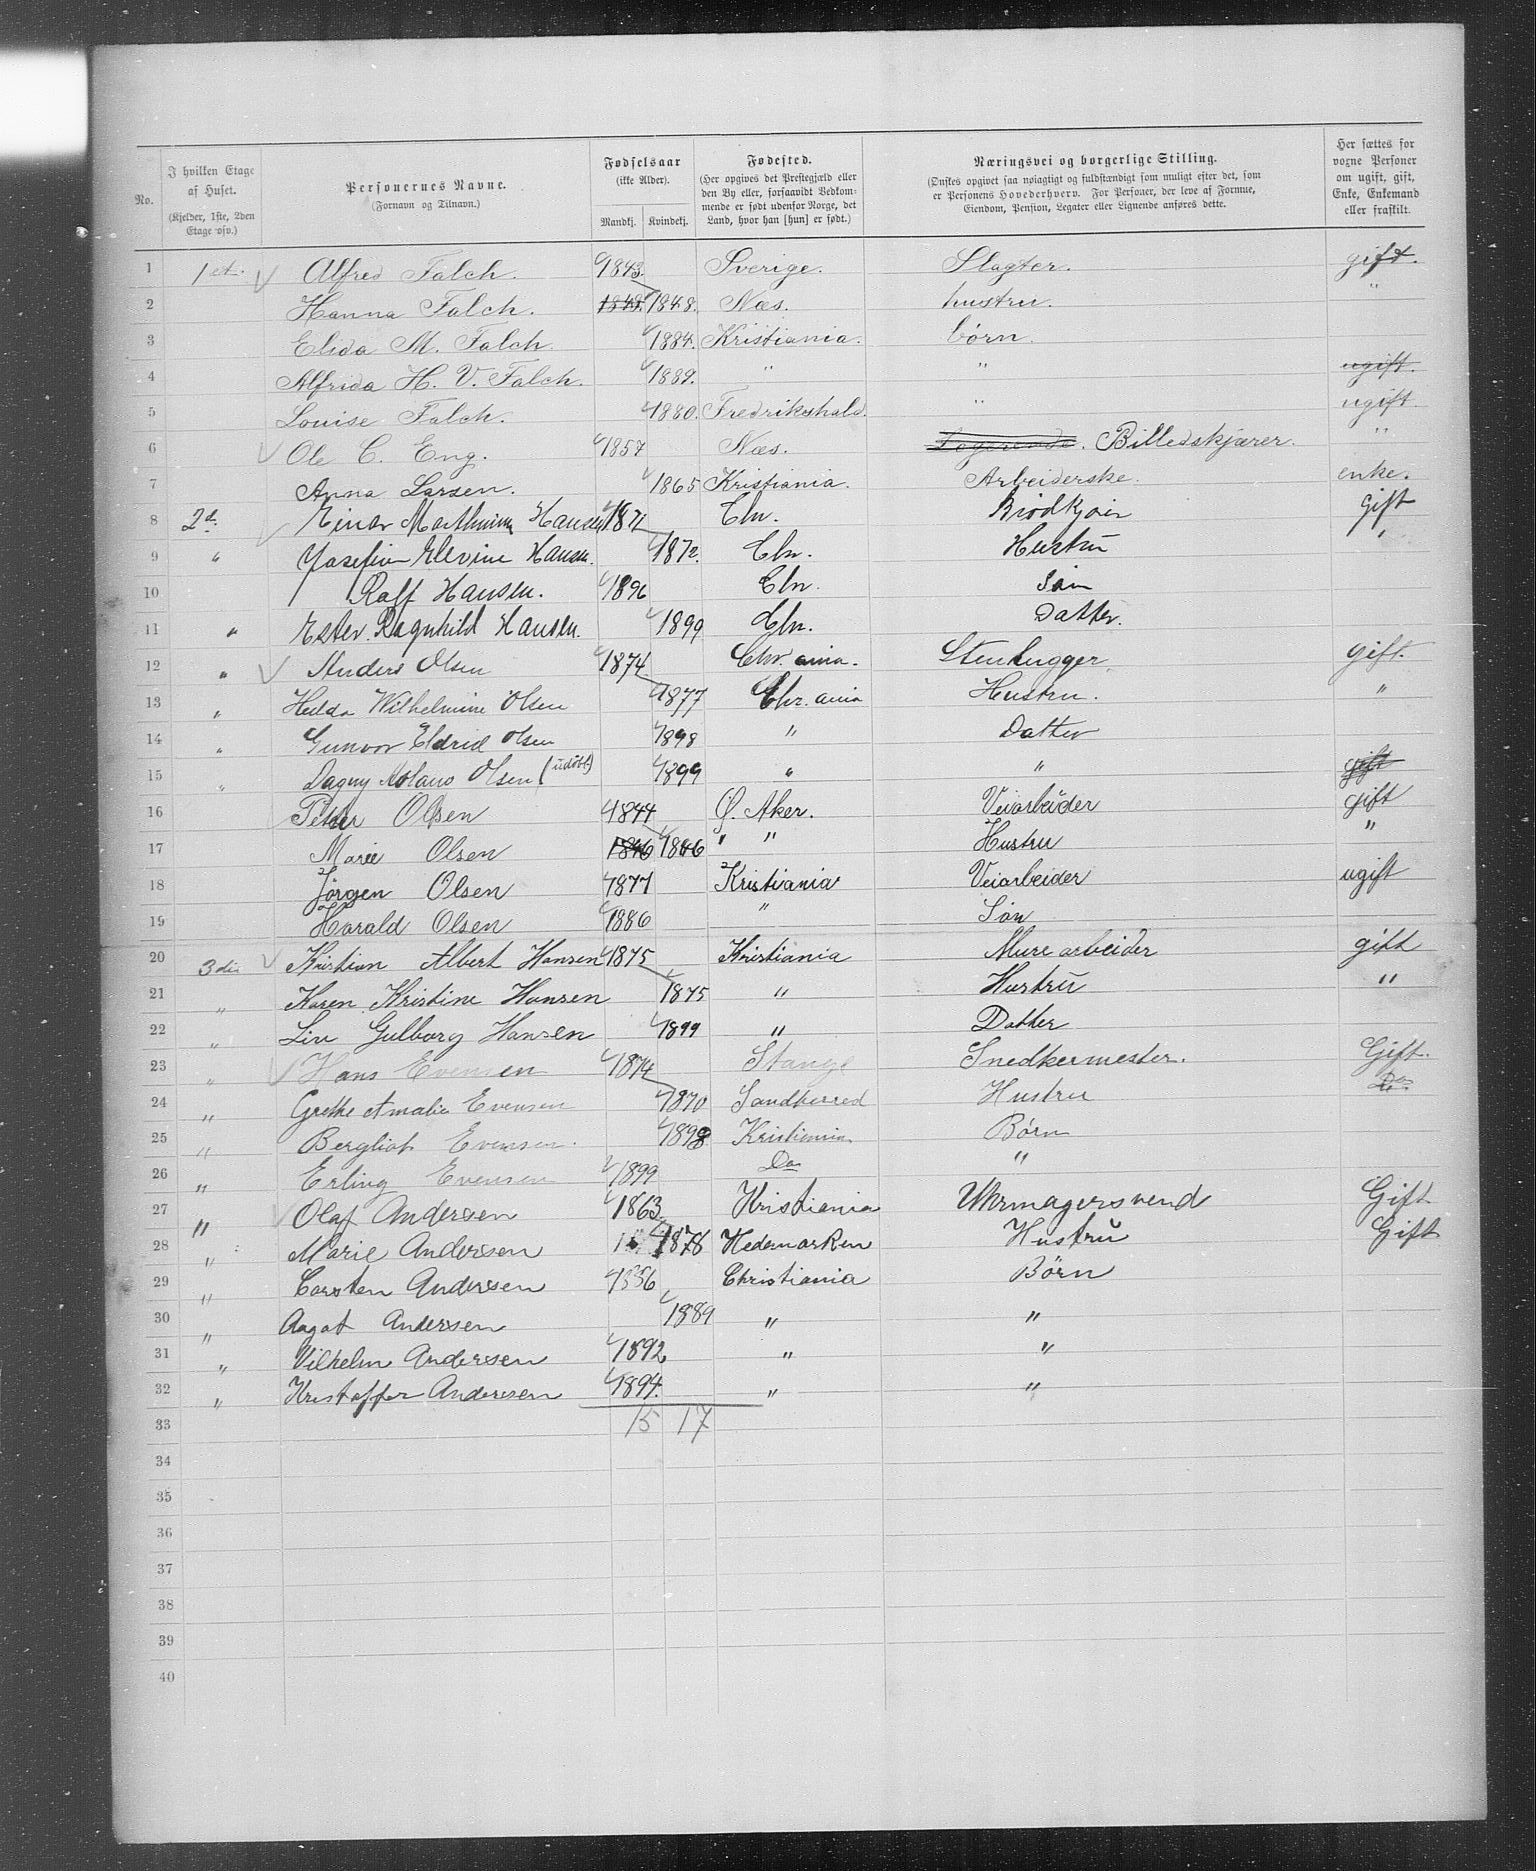 No.
I hvilken Etage af Huset.
(Kjelder, 1ste, 2den Etage osv.)
Personernes Navne.
(Fornavn og Tilnavn.)
Fødselsaar
(ikke Alder).
Mandkj. Kvindekj.
Fødested.
(Her opgives det Prestegjæld eller den By eller, forsaavidt Vedkommende er født udenfor Norge, det Land, hvor han [hun] er født.)
Næringsvei og borgerlige Stilling.
(Ønskes opgivet saa nøiagtigt og fuldstændigt som muligt efter det, som er Personens Hovederhverv. For Personer, der leve af Formue, Eiendom, Pension, Legater eller Lignende anføres dette.
Her sættes for voxne Personer om ugift, gift, Enke, Enkemand eller fraskilt.
1 1 et. Alfred Falch. 1843. Sverige. Slagter. gift.
2 Hanna Falch. 1848. 1848. Næs. hustru. "
3 Elida M. Falch. 1884. Kristiania. børn.
4 Alfrida H. V. Falch. 1889. " " ugift.
5 Louise Falch. 1880. Fredrikshald. " ugift.
6 Ole C. Eng. 1857 Næs. Logerende. Billedskjærer. "
7 Anna Larsen. 1865 Kristiania. Arbeiderske. enke.
8 2d. Einar Marthinius Hansen 1871 Chr. Brødkjører Gift
9 " Josefine Elevine Hansen. 1872. Chr. Hustru "
10 Ralf Hansen. 1896 Chr. Søn
11 " Ester Ragnhild Hansen. 1899 Chr. Datter.
12 " Anders Olsen 1874 Chr. ania. Stenhugger gift.
13 " Hulda Wilhelmine Olsen 1877 Chr. ania Hustru. "
14 " Gunvor Eldrid Olsen 1898 " Datter
15 " Dagny Olsen (udøbt) 1899 " " gift
16 Petter Olsen 1844 Ø. Aker. Veiarbeider gift
17 Marie Olsen 1846 1846 " " Hustru "
18 Jørgen Olsen 1877 Kristiania Veiarbeider ugift
19 Harald Olsen 1886 " Søn
20 3die Kristian Albert Hansen 1875 Kristiania Murearbeider gift
21 " Karen Kristine Hansen 1875 " Hustru "
22 " Liv Gulborg Hansen 1899 " Datter
23 " Hans Evensen 1874 Stange Snedkermester. Gift.
24 " Grethe Amalie Evensen 1870 Sandherred Hustru Do
25 " Bergliot Evensen. 1898 Kristiania Børn
26 " Erling Evensen 1899 Do "
27 " Olaf Andersen 1863 Kristiania Uhrmagersvend Gift
28 " Marie Andersen 1878 Hedemarken Hustru Gift
29 " Carsten Andersen Christiania Børn
30 " Aagot Andersen 1889 " "
31 " Vilhelm Andersen 1892 " "
32 " Kristoffer Andersen 1894. " "
33 15 17
34
35
36
37
38
39
40